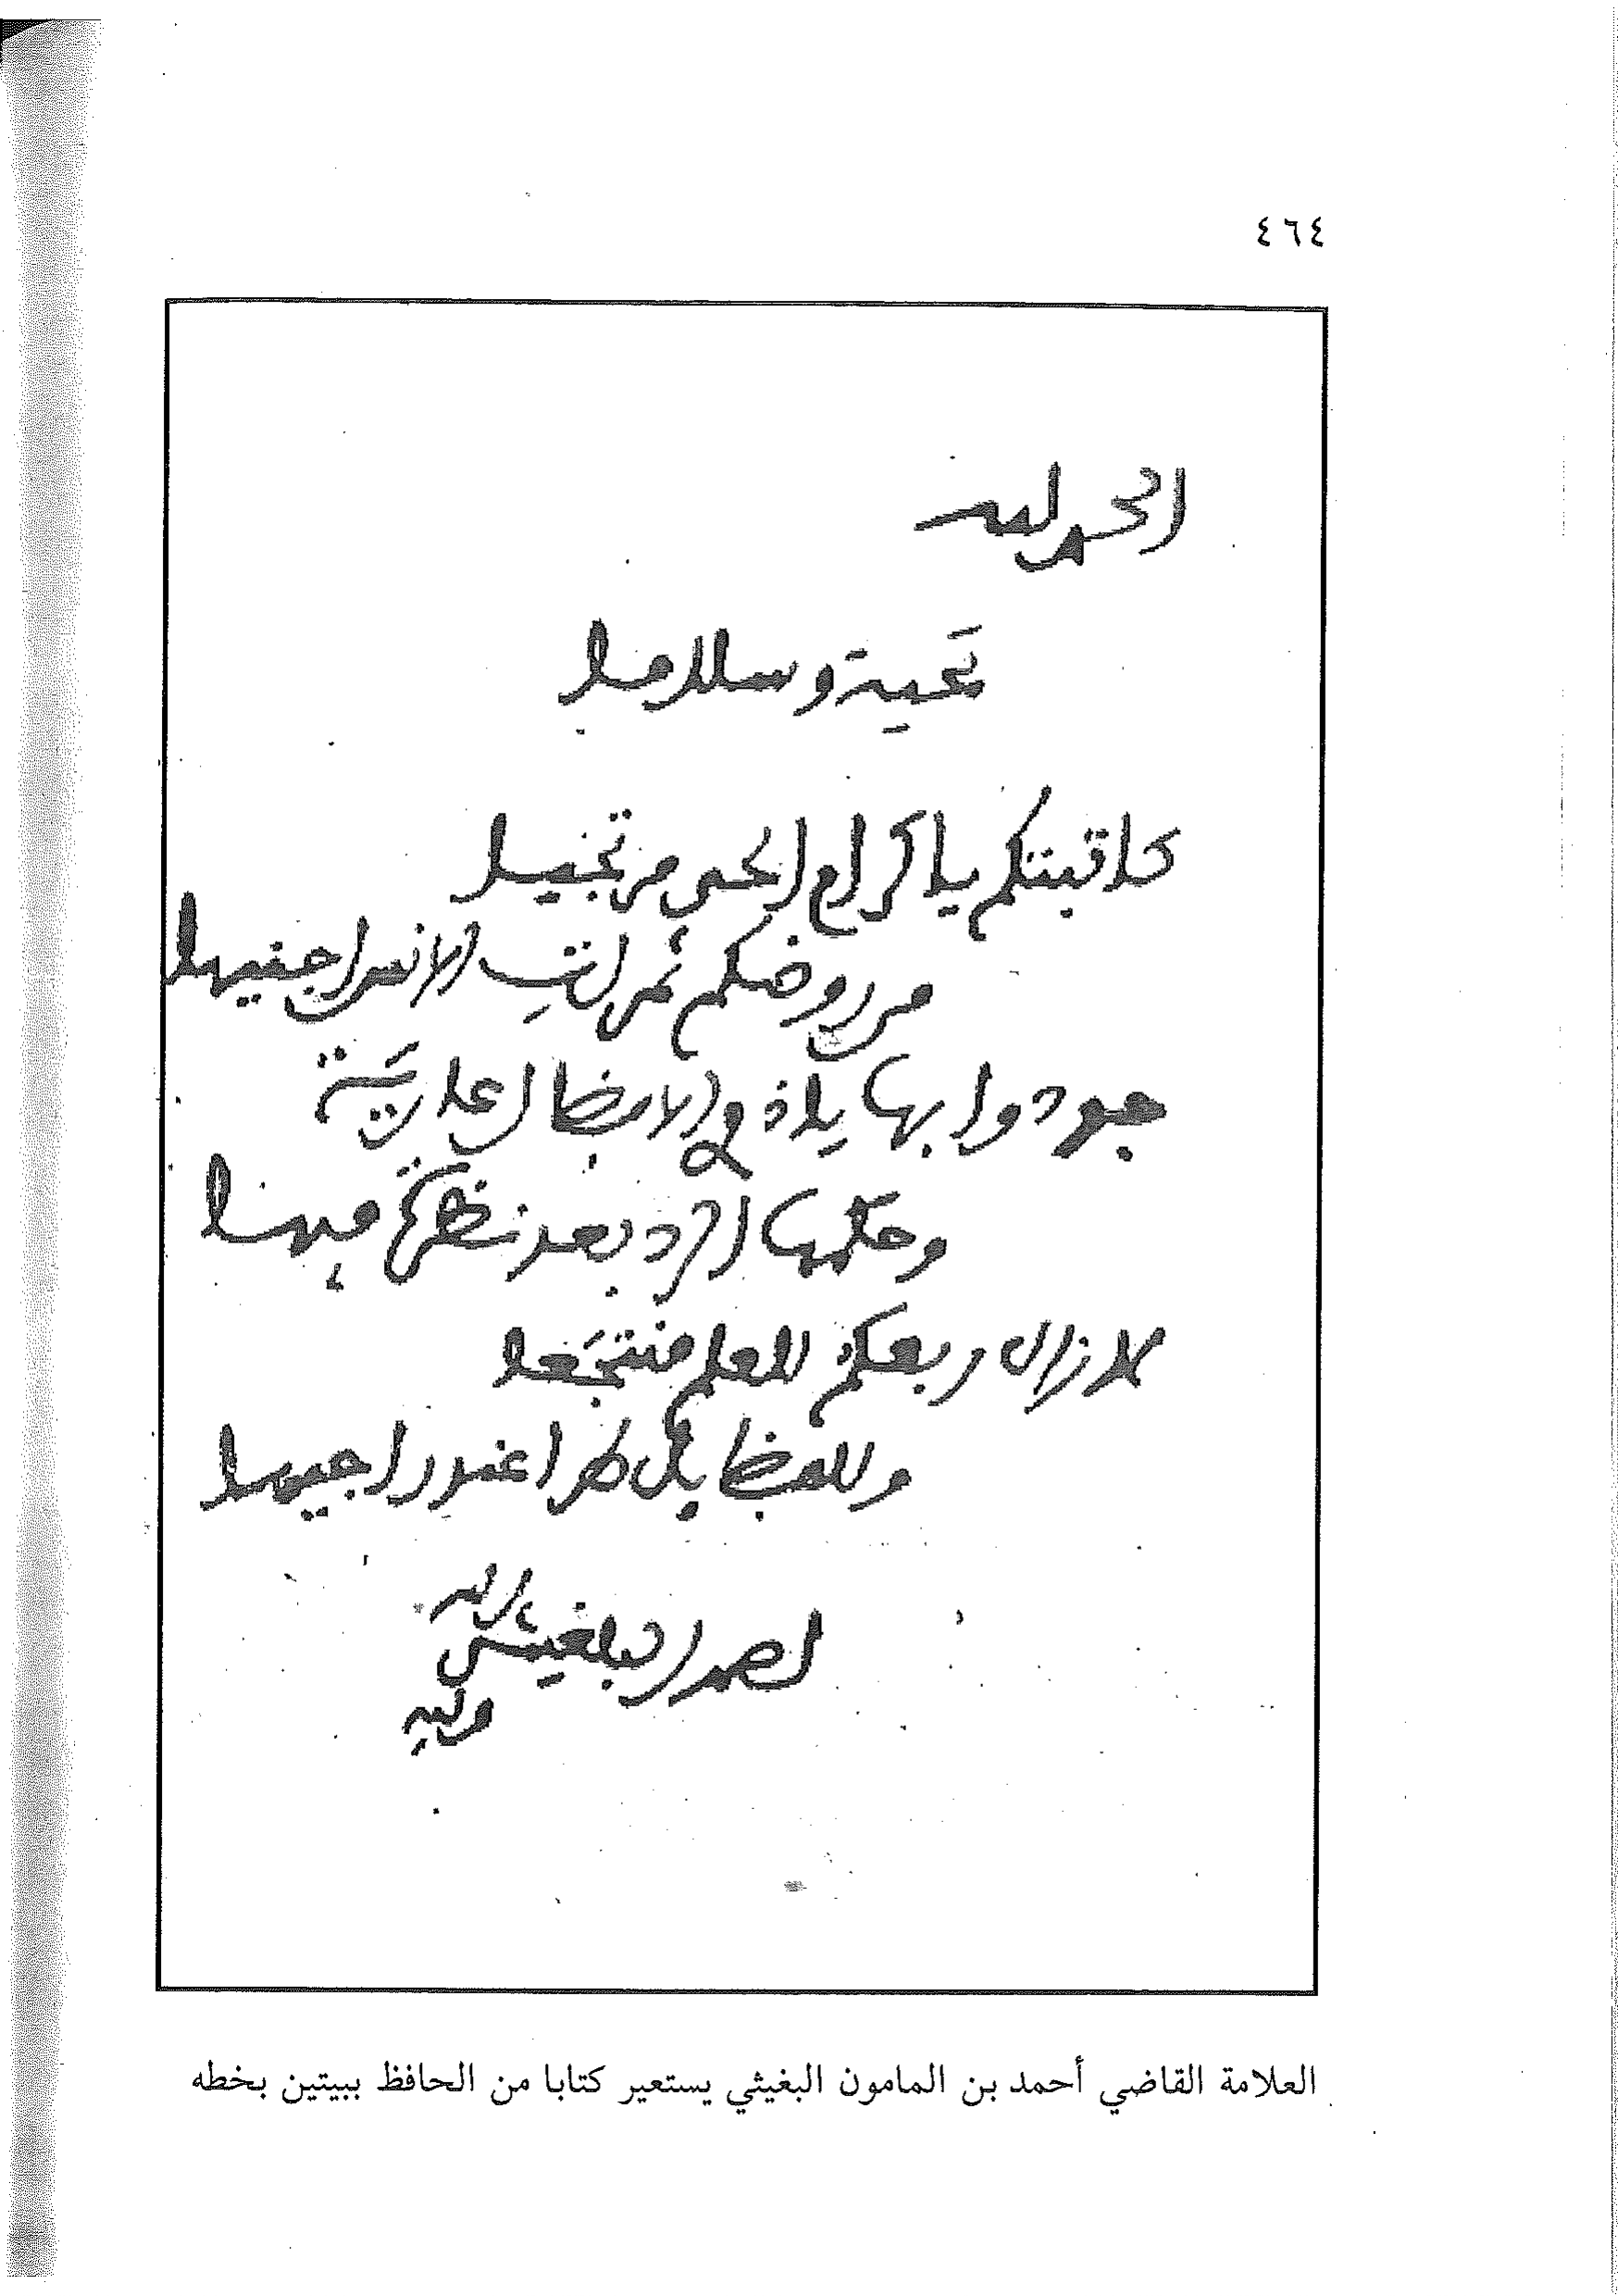 ٤٦٤
الحمد لله
تحية وسلاما
كاتبتكم يا كرام الحي من تجنيا
من روضكم ثمرات الانس اجنيها
جودوا بها يا ذوي الافضال عارية
وحكمها الرد بعد نظرة فيها
لا زال ربعكم للعلم منتجعا
وللفضايل طرا عند راجيها
احمد البلغيثي
الله
وليه
العلامة القاضي أحمد بن المامون البغيثي يستعير كتابا من الحافظ ببيتين بخطه